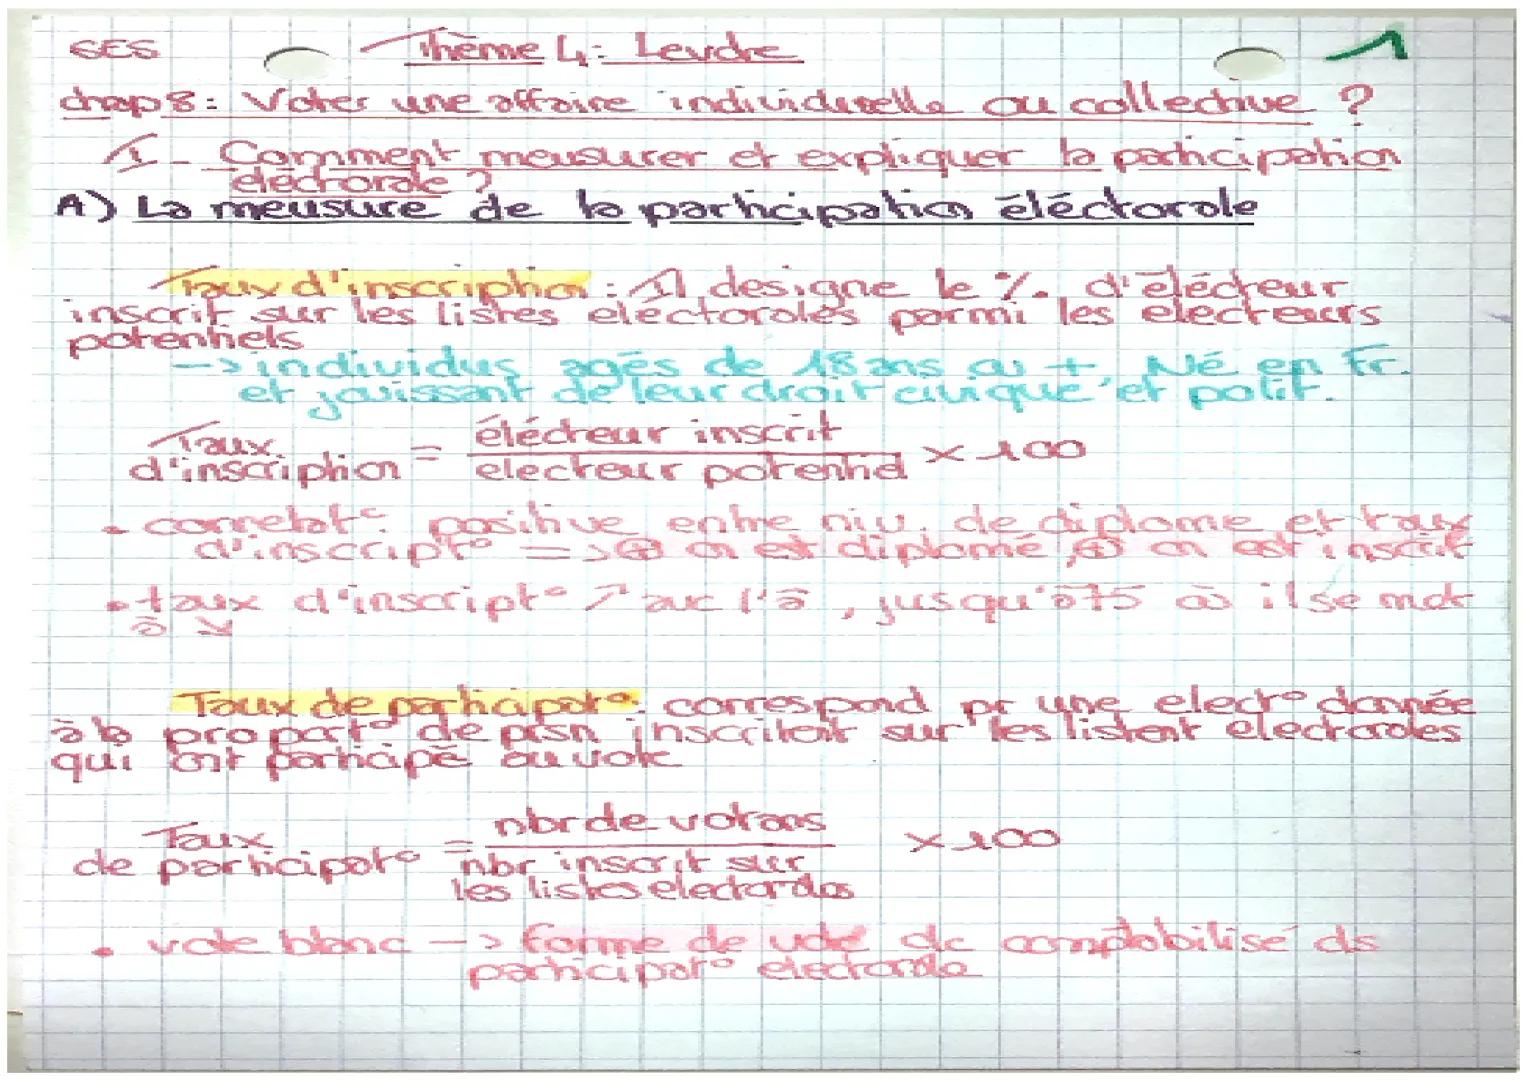 SES Thème 4: Levote 1
chap 8: Voter une affaire individuelle ou collective ?
I - Comment meusurer et expliquer la participation
electorale ?
A) La meusure de la participation éléctorale
Taux d'inscription : Il designe le % d'elécteur
inscrit sur les listes electorales parmi les electeurs
potentiels
-> individus agés de 18 ans ou + Né en Fr.
et jouissant de leur droit civique et polit.
Taux d'inscription = élécteur inscrit / electeur potentiel × 100
• correlat° positive entre niv. de diplome et taux
d'inscript° => + on est diplomé, + on est inscrit
• taux d'inscript° ↗ avc l'â, jusqu'à 75 où il se met
à ↘
Taux de participat° : correspond pr une elect° donnée
à la proport° de prsn inscritent sur les listent electorales
qui ont participé au vote
Taux de participat° = nbr de votans / nbr inscrit sur les listes electorales × 100
• vote blanc -> forme de vote dc comptabilisé ds
participat° electorale